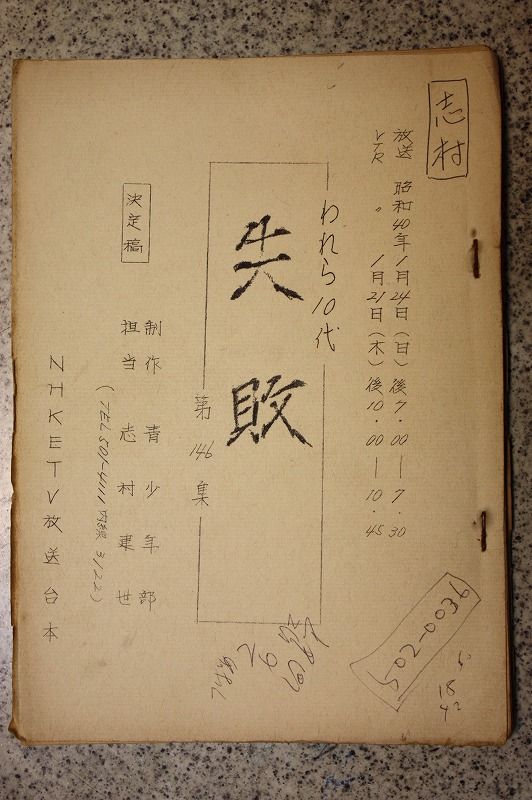 志村
放送 昭和40年1月24日(日)後7.00―7.30
VTR 〃 1月21日(木)後10.00―10.45
われら10代
失敗
第146集
決定稿
制作 青少年部
担当 志村建世
(TEL 501-4111 内線 3122)
NHKETV放送台本
502-0036
18
42